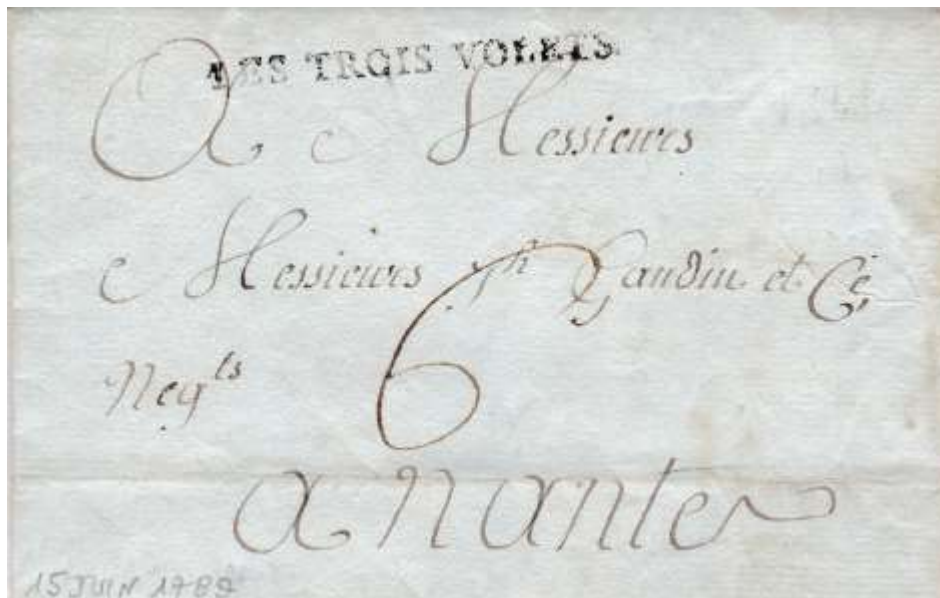 LES TROIS VOLETS
A Messieurs
Messieurs Jh Gaudin et Cie
Negts
6
a Nantes
15 JUIN 1789